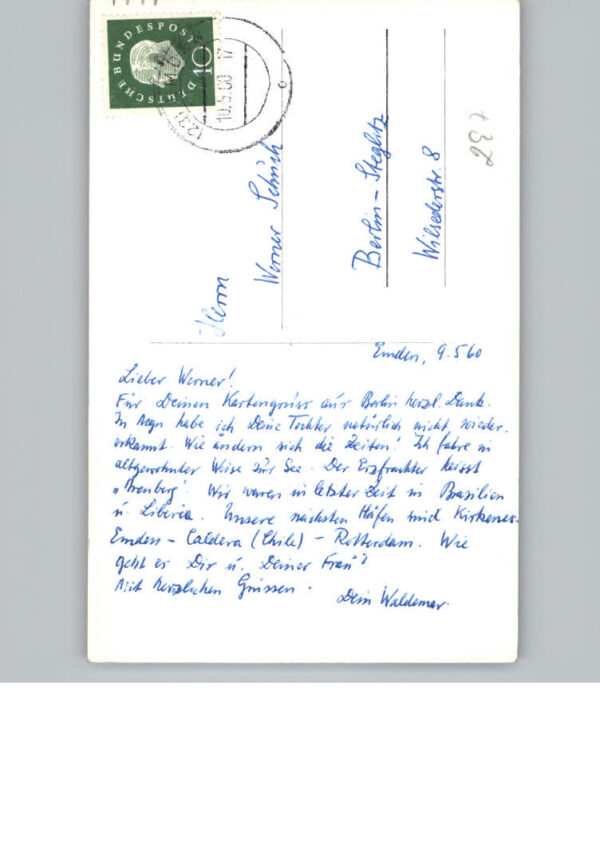 DEUTSCHE BUNDESPOST
10
10.5.60 17
c
237
Herrn
Werner Schück
Berlin-Steglitz
Wilsederstr. 8
Emden, 9.5.60
Lieber Werner!
Für Deinen Kartengruss aus Berlin herzl. Dank.
In habe ich Deine Tochter natürlich nicht wieder-
erkannt. Wie ändern sich die Zeiten! Ich fahre in
altgewohnter Weise zur See. Der Erzfrachter heisst
Wir waren in letzter Zeit in Brasilien
u. Liberia. Unsere nächsten Häfen sind Kirkenes-
Emden - Caldera (Chile) - Rotterdam. Wie
geht es Dir u. Deiner Frau?
Mit herzlichen Grüssen.
Dein Waldemar.